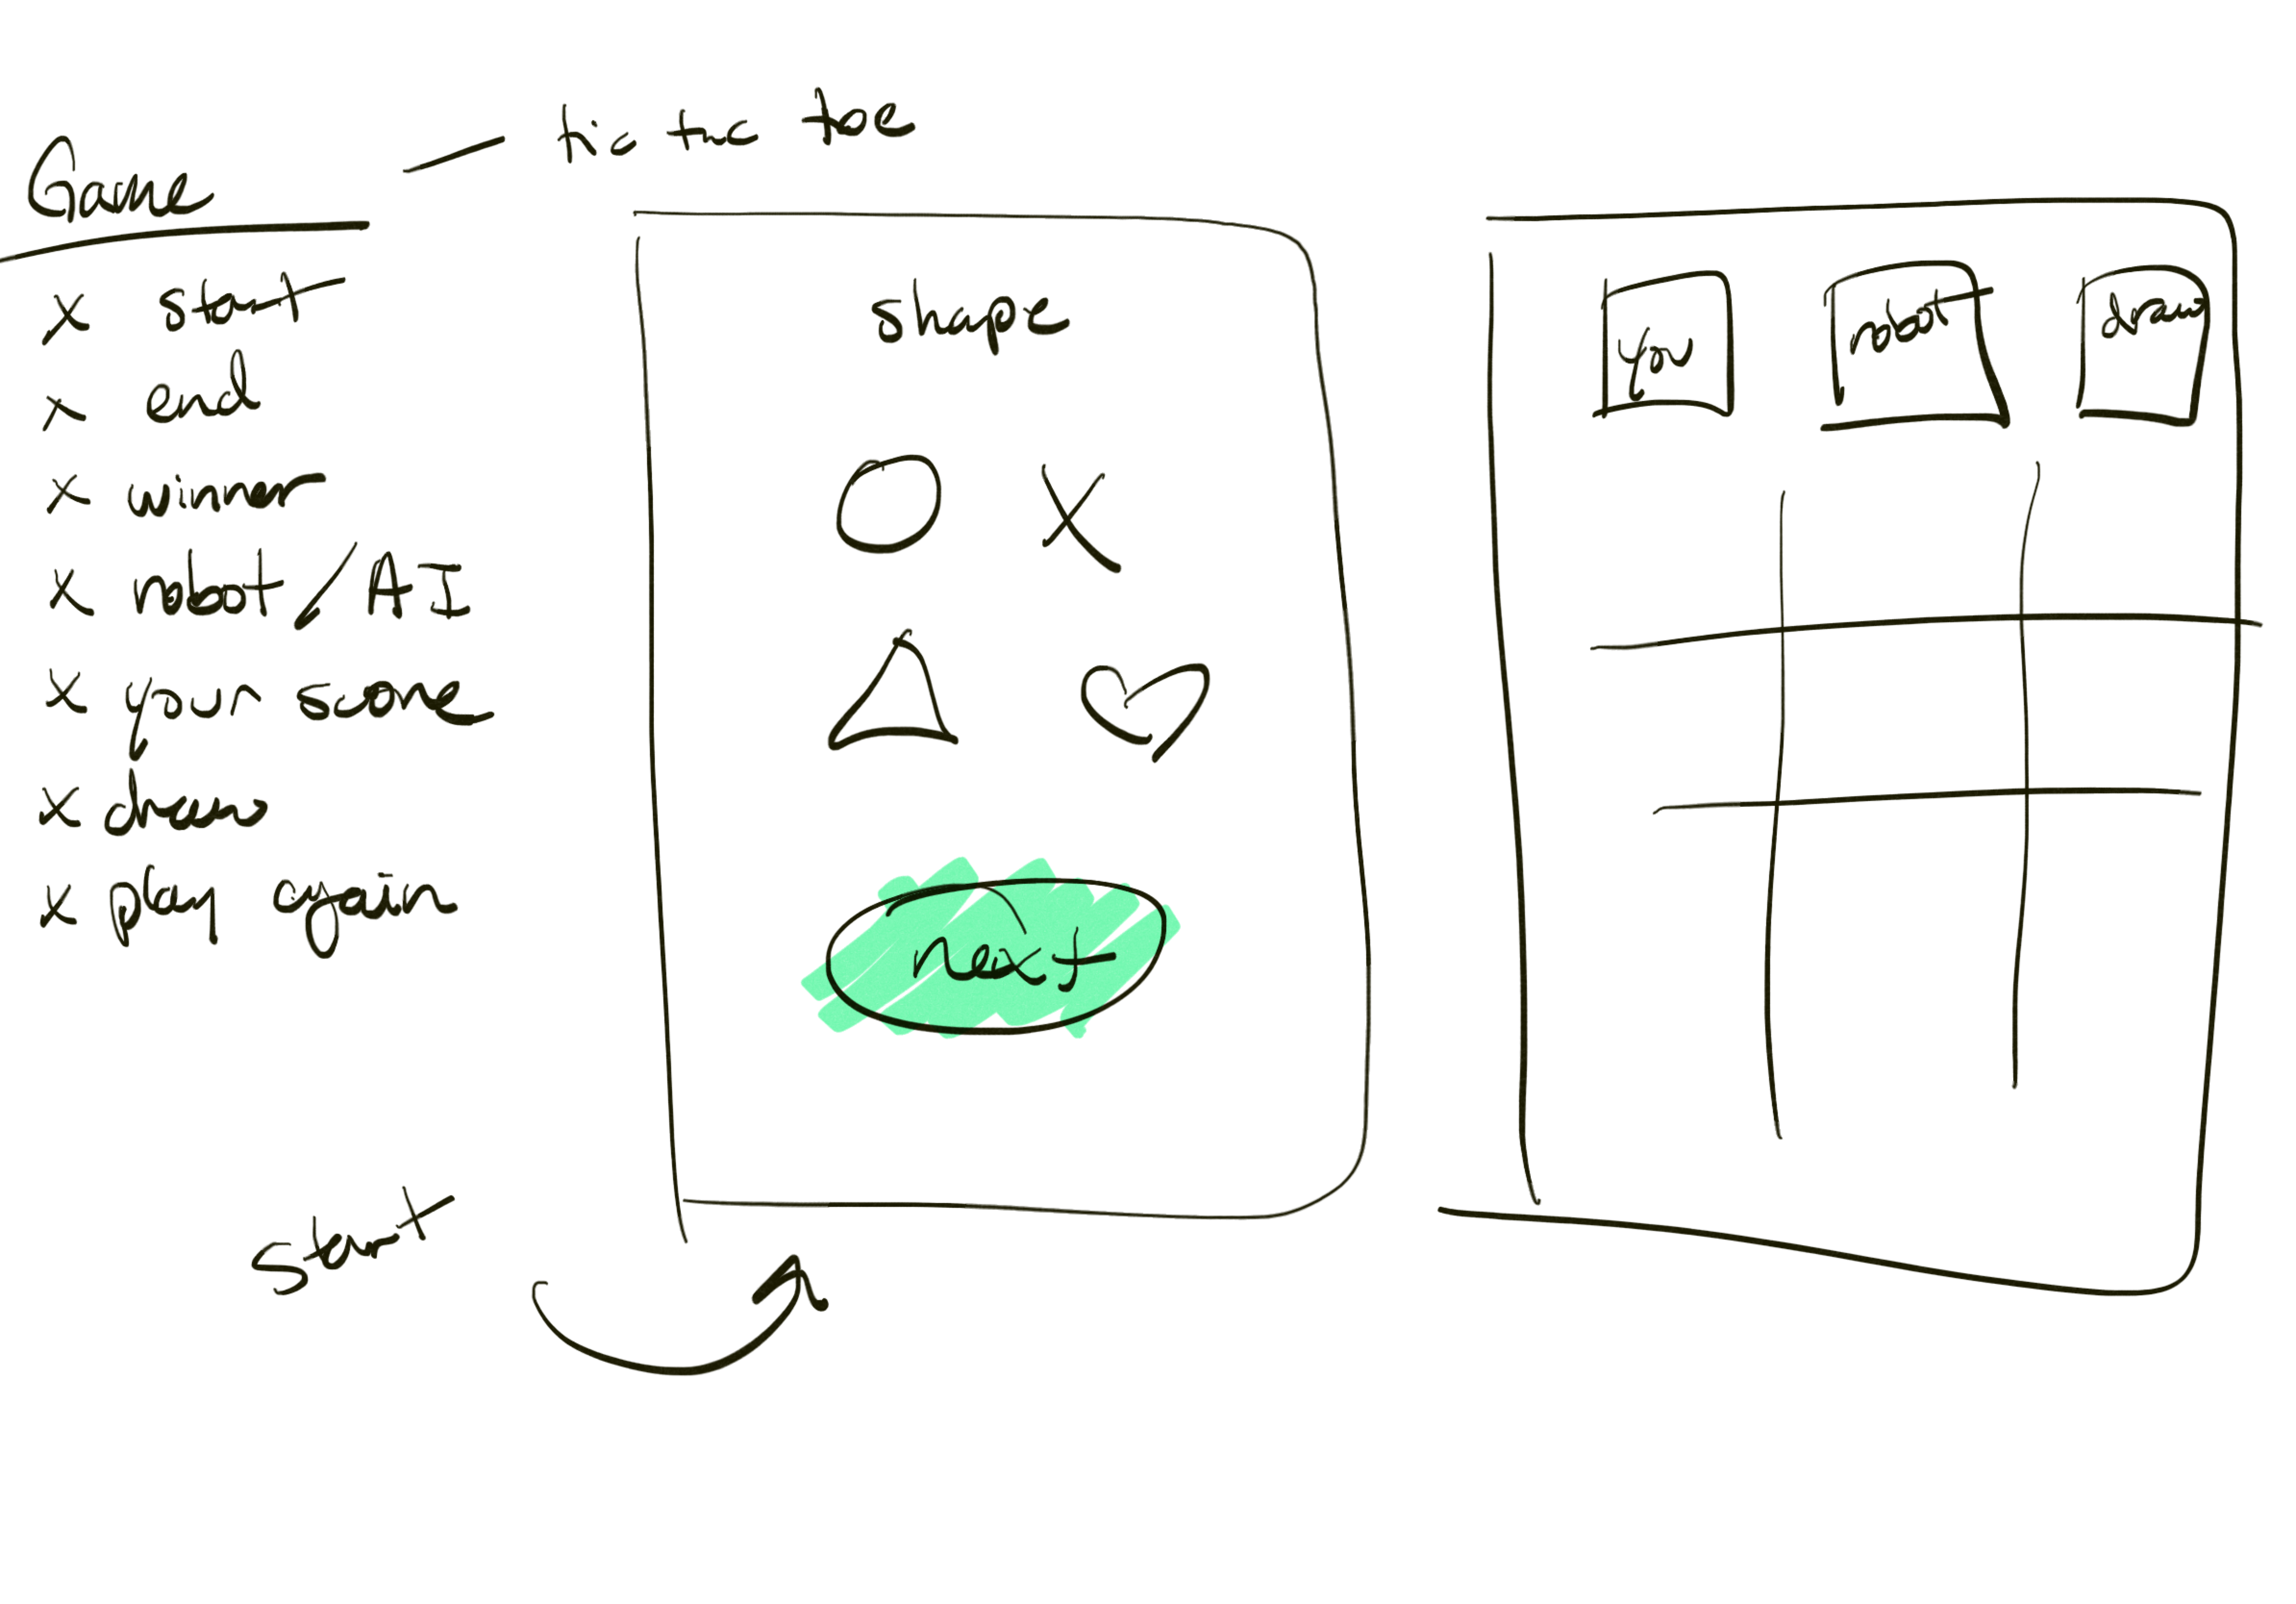 Game — tic tac toe
x start
x end
x winner
x robot/AI
x your score
x draw
x play again
start
shape
next
you
robot
draw